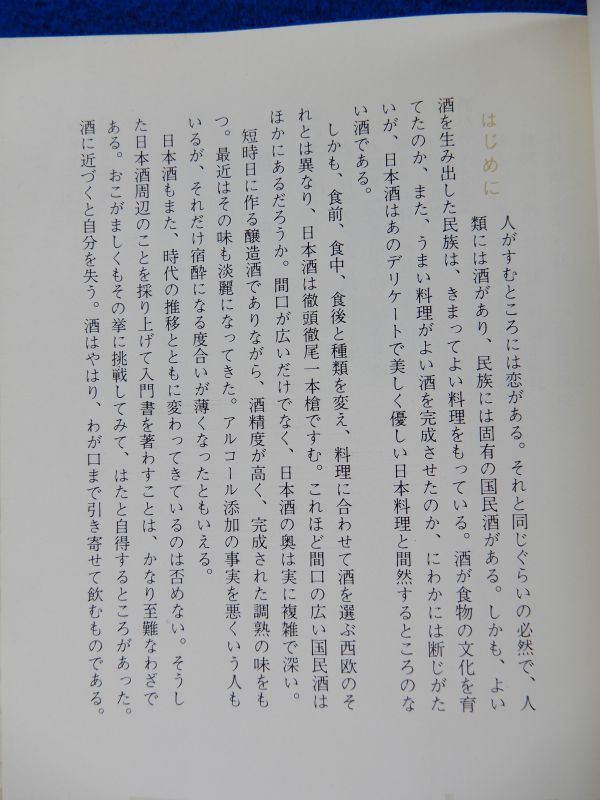 はじめに
人がすむところには恋がある。それと同じぐらいの必然で、人
類には酒があり、民族には固有の国民酒がある。しかも、よい
酒を生み出した民族は、きまってよい料理をもっている。酒が食物の文化を育
てたのか、また、うまい料理がよい酒を完成させたのか、にわかには断じがた
いが、日本酒はあのデリケートで美しく優しい日本料理と間然するところのな
い酒である。
しかも、食前、食中、食後と種類を変え、料理に合わせて酒を選ぶ西欧のそ
れとは異なり、日本酒は徹頭徹尾一本槍ですむ。これほど間口の広い国民酒は
ほかにあるだろうか。間口が広いだけでなく、日本酒の奥は実に複雑で深い。
短時日に作る醸造酒でありながら、酒精度が高く、完成された調熟の味をも
つ。最近はその味も淡麗になってきた。アルコール添加の事実を悪くいう人も
いるが、それだけ宿酔になる度合いが薄くなったともいえる。
日本酒もまた、時代の推移とともに変わってきているのは否めない。そうし
た日本酒周辺のことを採り上げて入門書を著わすことは、かなり至難なわざで
ある。おこがましくもその挙に挑戦してみて、はたと自得するところがあった。
酒に近づくと自分を失う。酒はやはり、わが口まで引き寄せて飲むものである。